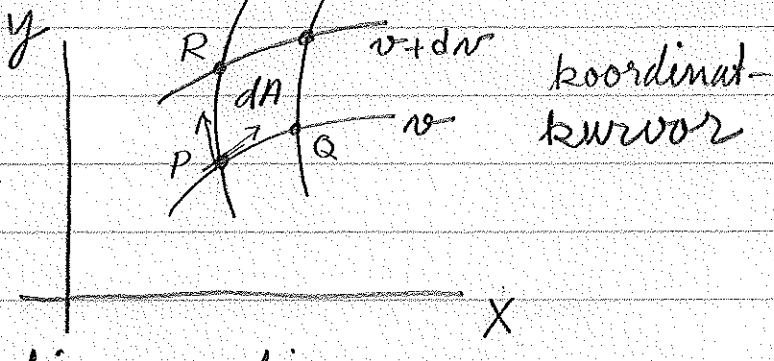 y
R
v+dv
dA
koordinat-
v
kurvor
P
Q
X